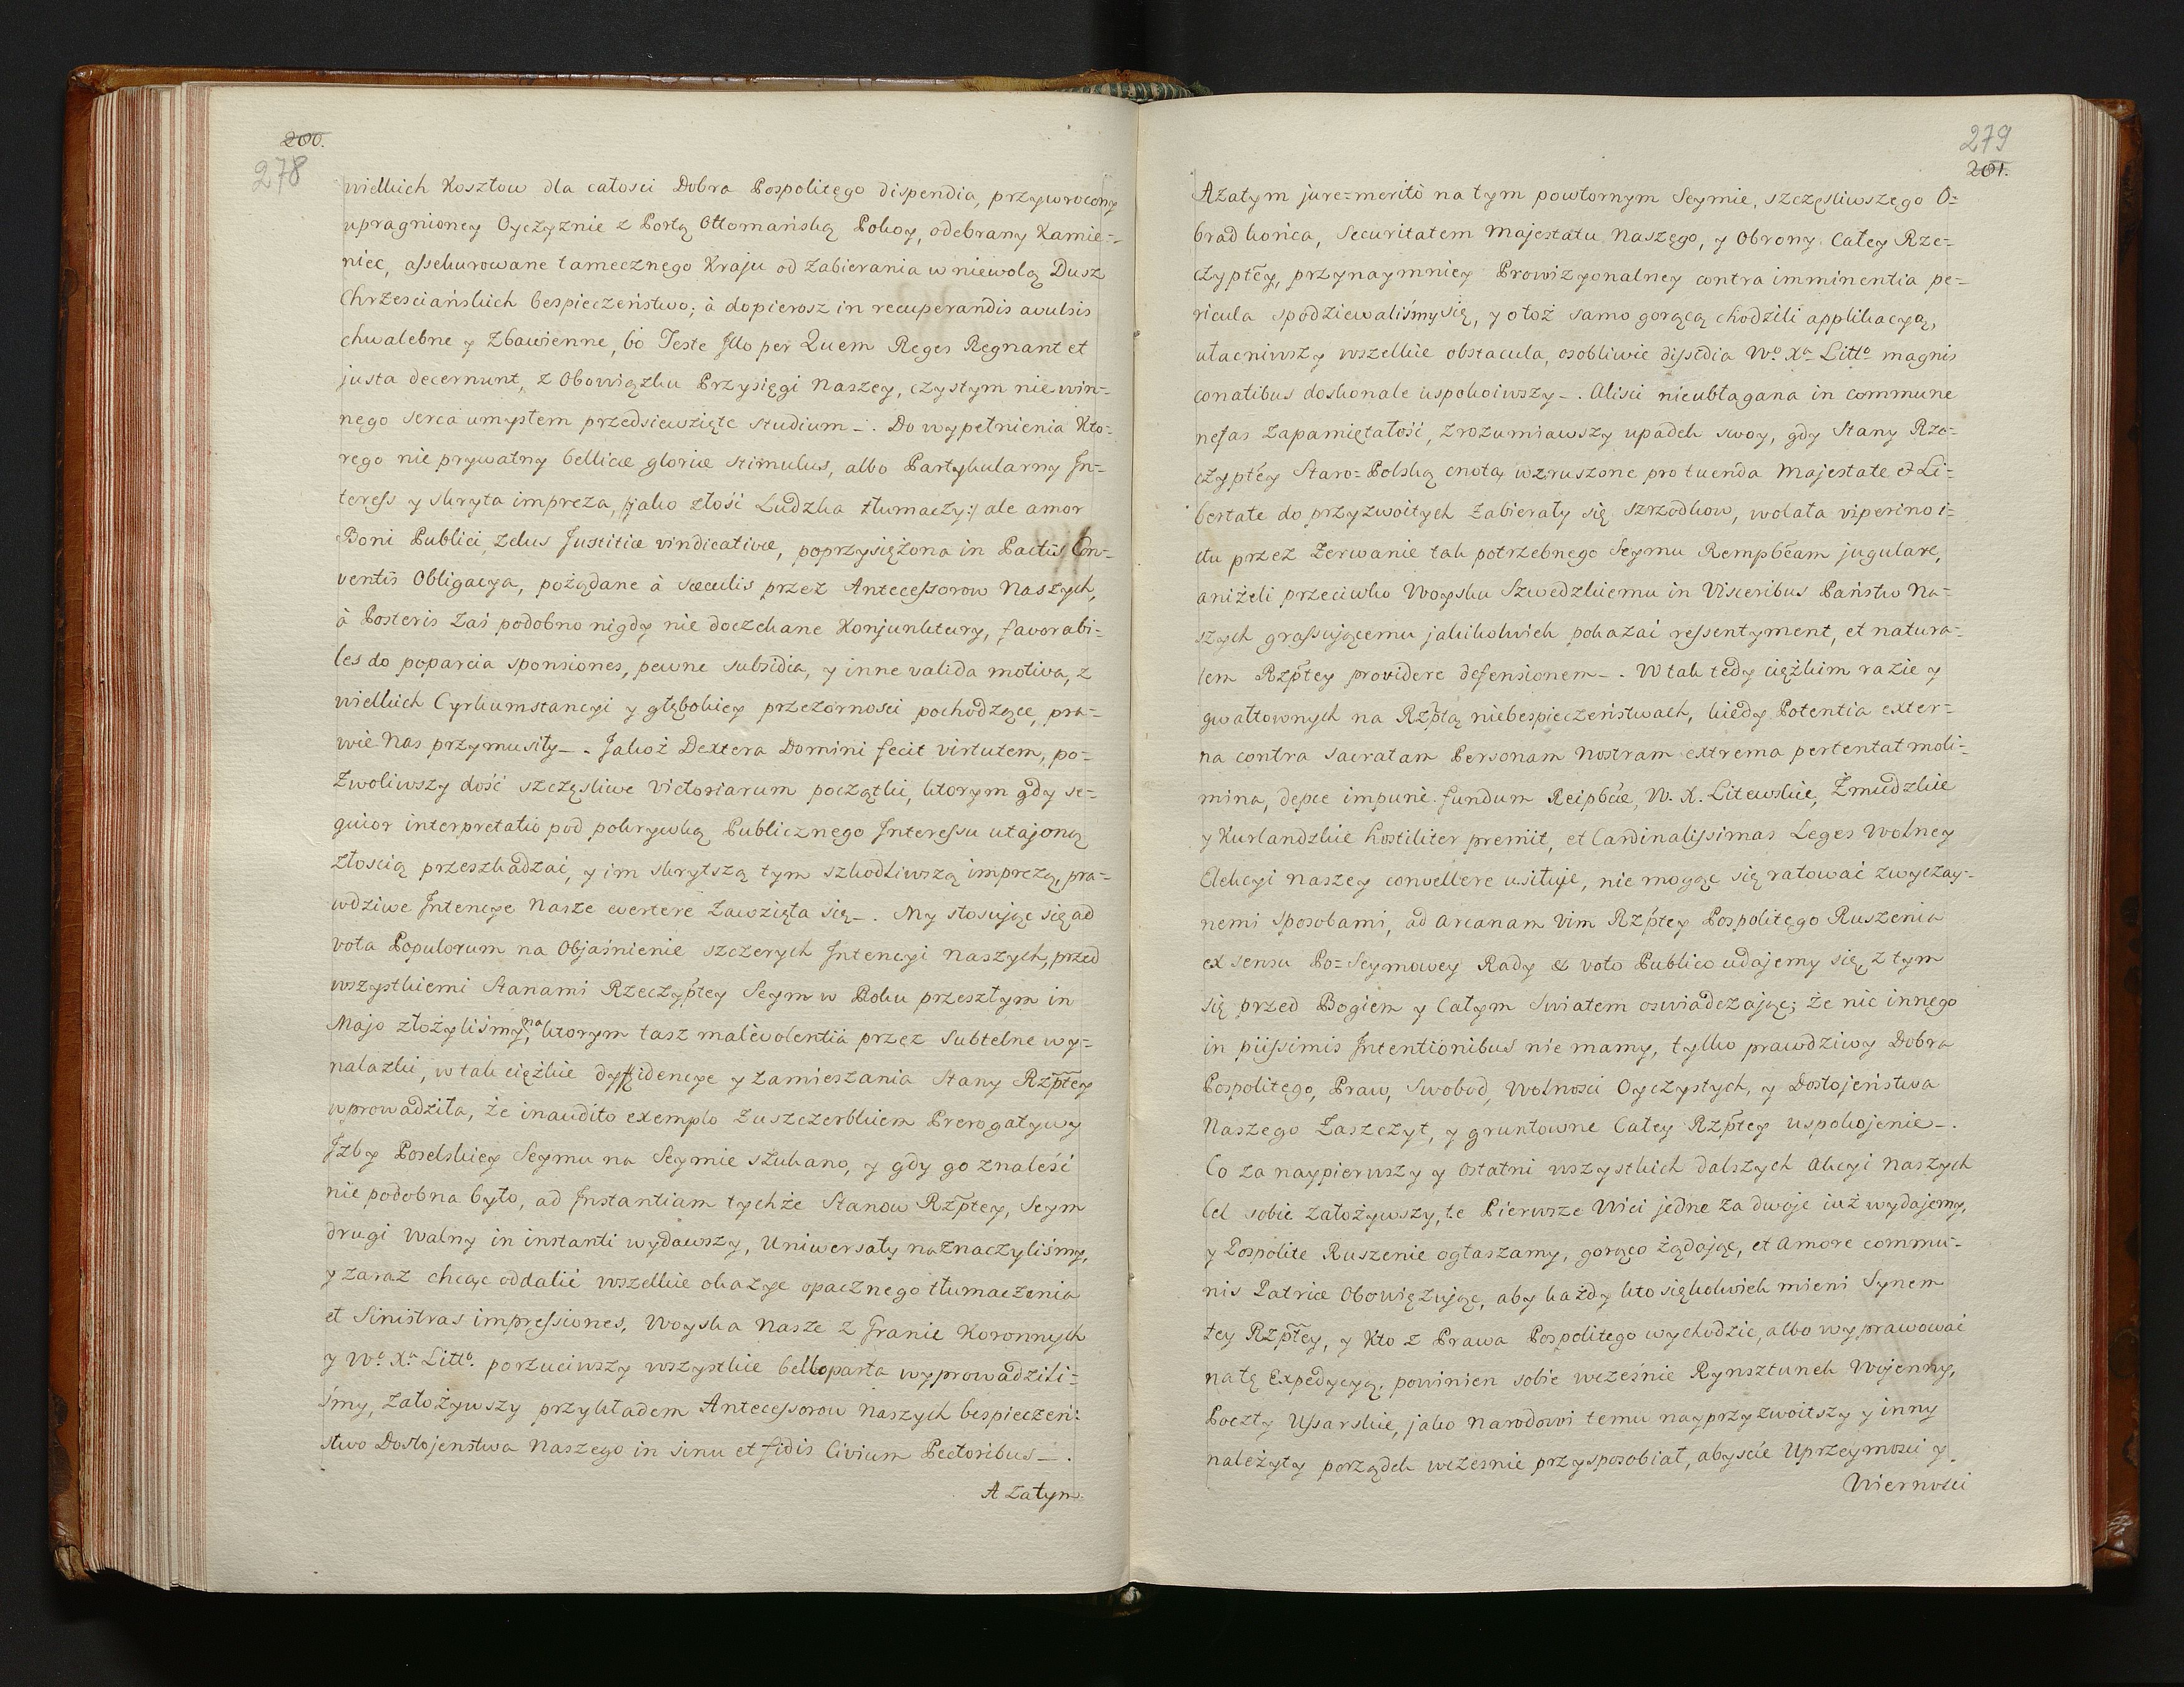 200.
278
wielkich Kosztow dla całosci Dobra Pospolitego dispendia, przywrocony
upragnioney Oyczyznie z Portą Ottomańską Pokoy, odebrany Kamie=
niec, assekurowane tamecznego Kraju od zabierania w niewolą Dusz
Chrzesciańskich bespieczeństwo; à dopierosz in recuperandis avulsis
chwalebne y zbawienne, bo Teste Illo per Quem Reges Regnant et
justa decernunt, z Obowiązku Przysięgi Naszey, czystym niewin=
nego serca umysłem przedsiewzięte studium_. Do wypełnienia Kto=
rego nie prywatny bellicæ gloriæ stimulus, albo Partykularny In=
teress y skryta impreza, /:jako złość Ludzka tłumaczy:/ ale amor
Boni Publici, zelus Justitiæ vindicativæ, poprzysiężona in Pactis Con=
ventis Obligacya, pożądane à sæculis przez Antecessorow Naszych,
à Posteris zaś podobno nigdy nie doczekane Konjunktury, favorabi=
les do poparcia sponsiones, pewne subsidia, y inne valida motiva, z
wielkich Cyrkumstancyi y głębokiey przezorności pochodzące, pra=
wie Nas przymusiły_. Jakoż Dextera Domini fecit virtutem, po=
zwoliwszy dość szczęsliwe Victoriarum początki, ktorym gdy se=
quior interpretatio pod pokrywką Publicznego Interessu utajoną
złoscią przeszkadzać, y im skrytszą tym szkodliwszą imprezą, pra=
wdziwe Intencye Nasze evertere zawzięła się_. My stosując się ad
vota Populorum na Objaśnienie szczerych Intencyi Naszych, przed
wszystkiemi Stanami Rzeczyptey Seym w Roku przeszłym in
Majo złożyliśmy, na ktorym tasz malevolentia przez subtelne wy=
nalazki, w tak ciężkie dyffidencye y zamieszania Stany Rzptey
wprowadziła, że inaudito exemplo z uszczerbkiem Prerogatywy
Izby Poselskiey Seymu na Seymie szukano, y gdy go znaleść
nie podobna było, ad Instantiam tychże Stanow Rzptey, Seym
drugi Walny in instanti wydawszy, Uniwersały naznaczyliśmy,
y zaraz chcąc oddalić wszelkie okazye opacznego tłumaczenia
et Sinistras impressiones, Woyska Nasze z Granic Koronnych
y Wo. Xa. Litto. porzuciwszy wszystkie belloparta wyprowadzili=
śmy, założywszy przykładem Antecessorow Naszych bespieczeń=
stwo Dostojenstwa Naszego in sinu et fidis Civium Pectoribus_.
A zatym
279
201.
A zatym jure=merito na tym powtornym Seymie, szczęsliwszego O=
brad końca, Securitatem Majestatu Naszego, y Obrony Całey Rze=
czyptey, przynaymniey Prowizyonalney contra imminentia pe=
ricula spodziewaliśmy się, y otoż samo gorącą chodzili applikacyą,
ułacniwszy wszelkie obstacula, osobliwie dissidia Wo Xa Litto magnis
conatibus doskonale uspokoiwszy_. Alisci nieubłagana in commune
nefas zapamiętałość, zrozumiawszy upadek swoy, gdy Stany Rze=
czyptey Staro=Polską cnotą wzruszone pro tuenda Majestate et Li=
bertate do przyzwoitych zabierały się szrzodkow, wolała viperino i=
ctu przez zerwanie tak potrzebnego Seymu Rempbcam jugulare,
aniżeli przeciwko Woysku Szwedzkiemu in Visceribus Państw Na=
szych grassującemu jakikolwiek pokazać ressentyment, et natura=
lem Rzptey providere defensionem_. W tak tedy ciężkim razie y
gwałtownych na Rzptą niebespieczeństwach, kiedy Potentia exter=
na contra sacratam Personam Nostram extrema pertentat moli=
mina, depce impune fundum Reipbcæ, W. X. Litewskie, Żmudzkie
y Kurlandzkie hostiliter premit, et Cardinalissimas Leges Wolney
Elekcyi Naszey convellere usituje, nie mogąc się ratować zwyczay=
nemi sposobami, ad arcanam Vim Rzptey Pospolitego Ruszenia
ex sensu Po=Seymowey Rady & voto Publico udajemy się, z tym
się przed Bogiem y Całym Swiatem oswiadczając; że nic innego
in piissimis Intentionibus nie mamy, tylko prawdziwy Dobra
Pospolitego, Praw, Swobod, Wolnosci Oyczystych, y Dostojeństwa
Naszego Zaszczyt, y gruntowne Całey Rzptey uspokojenie_.
Co za naypierwszy y ostatni wszystkich dalszych Akcyi Naszych
Cel sobie założywszy, te Pierwsze Wici jedne za dwoje iuż wydajemy,
y Pospolite Ruszenie ogłaszamy, gorąco żądając, et amore commu=
nis Patriæ Obowiązując, aby każdy kto się kolwiek mieni Synem
tey Rzptey, y Kto z Prawa Pospolitego wychodzić, albo wyprawować
na tę Expedycyą, powinien sobie wcześnie Rynsztunek Wojenny,
Poczty Ussarskie, jako Narodowi temu nayprzyzwoitszy y inny
należyty porządek wczesnie przysposobiał, abyście Uprzeymości y
Wierności